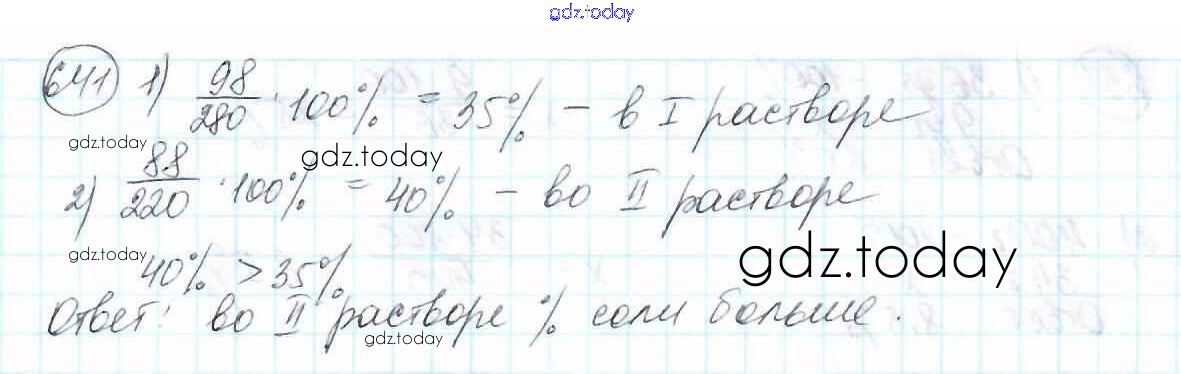 gdz.today
641 1) 98/280 · 100% = 35% – в I растворе
gdz.today
gdz.today
2) 88/220 · 100% = 40% – во II растворе
gdz.today
gdz.today
40% > 35%
Ответ: во II растворе % соли больше.
gdz.today